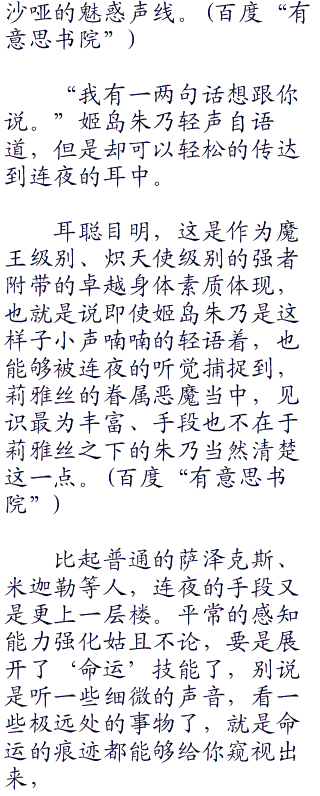 沙哑的魅惑声线。(百度“有
意思书院”)
“我有一两句话想跟你
说。”姬岛朱乃轻声自语
道，但是却可以轻松的传达
到连夜的耳中。
耳聪目明，这是作为魔
王级别、炽天使级别的强者
附带的卓越身体素质体现，
也就是说即使姬岛朱乃是这
样子小声喃喃的轻语着，也
能够被连夜的听觉捕捉到，
莉雅丝的眷属恶魔当中，见
识最为丰富、手段也不在于
莉雅丝之下的朱乃当然清楚
这一点。(百度“有意思书
院”)
比起普通的萨泽克斯、
米迦勒等人，连夜的手段又
是更上一层楼。平常的感知
能力强化姑且不论，要是展
开了‘命运’技能了，别说
是听一些细微的声音，看一
些极远处的事物了，就是命
运的痕迹都能够给你窥视出
来，